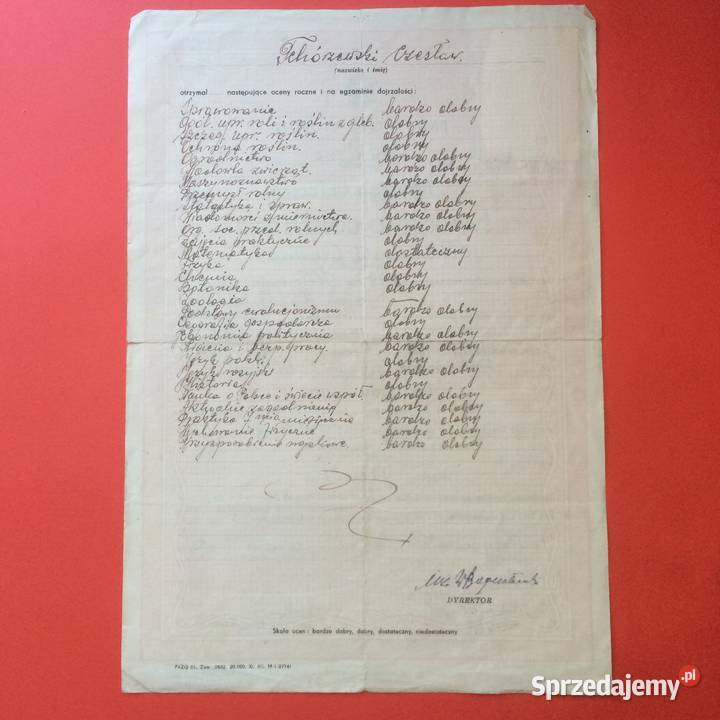 Tchórzewski Czesław.
(nazwisko i imię)
otrzymał następujące oceny roczne i na egzaminie dojrzałości:
Sprawowanie bardzo dobry
Ogól. upr. roli i roślin z gleb. dobry
Szczeg. upr. roślin. dobry
Ochrona roślin. dobry
Ogrodnictwo bardzo dobry
Hodowla zwierząt. bardzo dobry
Maszynoznawstwo bardzo dobry
Przemysł rolny dobry
Statystyka i spraw. bardzo dobry
Wiadomości z miernictwa. bardzo dobry
Org. soc. przed. rolnych bardzo dobry
Zajęcia praktyczne dobry
Matematyka dostateczny
Fizyka dobry
Chemia dobry
Botanika dobry
Zoologia
Podstawy ewolucjonizmu bardzo dobry
Geografia gospodarcza dobry
Ekonomia polityczna bardzo dobry
Higiena i bezp. pracy bardzo dobry
Język polski dobry
Język rosyjski bardzo dobry
Historia dobry
Nauka o Polsce i świecie współ. bardzo dobry
Aktualne zagadnienia bardzo dobry
Praktyka bardzo dobry
Wychowanie fizyczne bardzo dobry
Przysposobienie wojskowe. bardzo dobry
DYREKTOR
Skala ocen: bardzo dobry, dobry, dostateczny, niedostateczny
Sprzedajemy.pl